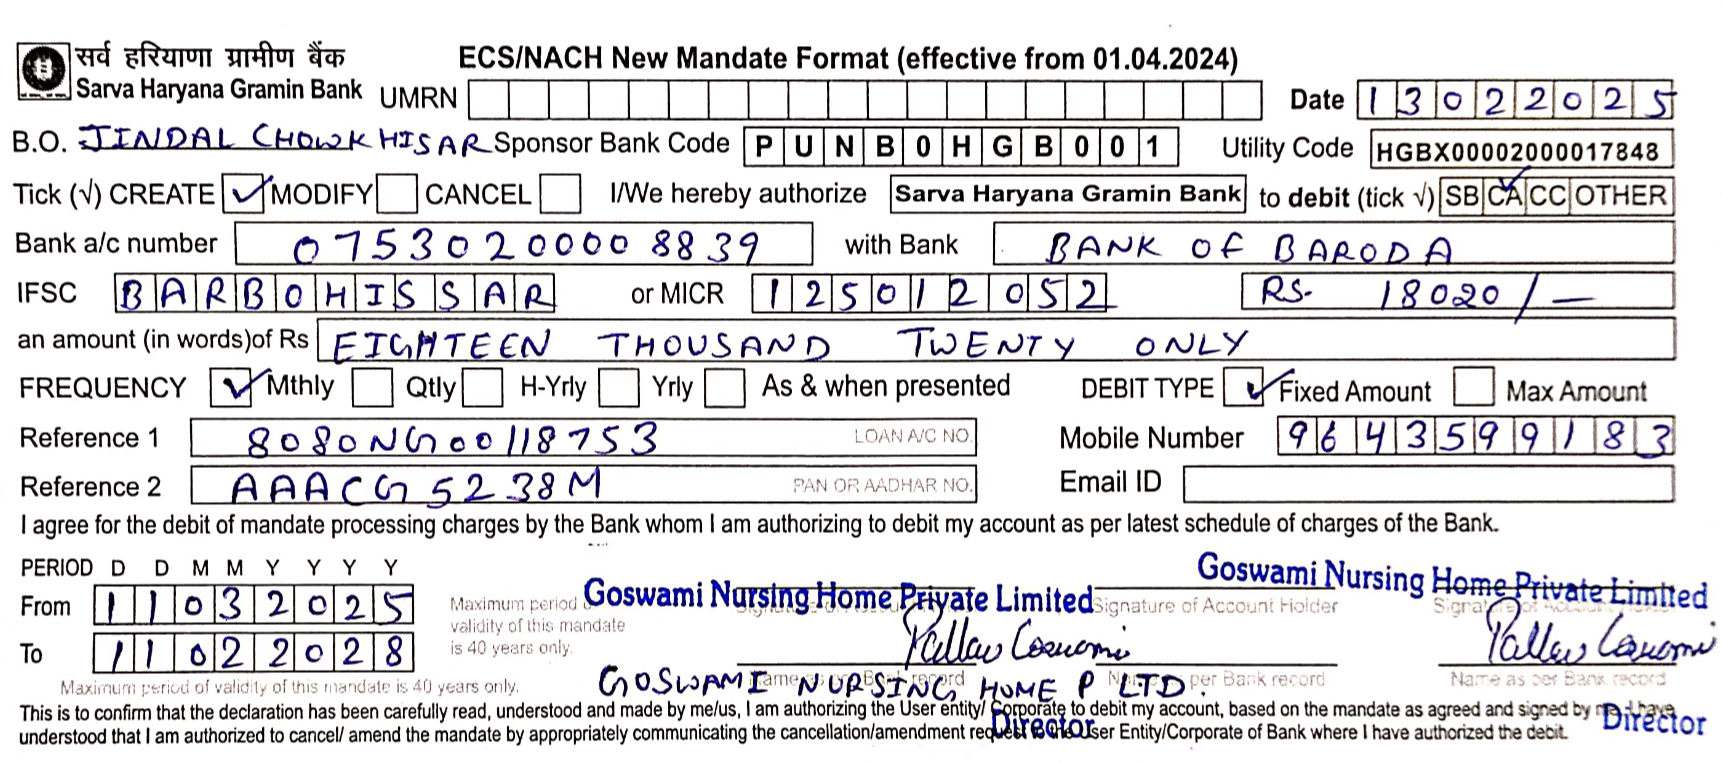 सर्व हरियाणा ग्रामीण बैंक
Sarva Haryana Gramin Bank
ECS/NACH New Mandate Format (effective from 01.04.2024)
UMRN Date 13022025
B.O. JINDAL CHOWK HISAR Sponsor Bank Code PUNB0HGB001 Utility Code HGBX00002000017848
Tick (√) CREATE ✓ MODIFY CANCEL I/We hereby authorize Sarva Haryana Gramin Bank to debit (tick √) SB CA ✓ CC OTHER
Bank a/c number 07530200008839 with Bank BANK OF BARODA
IFSC BARB0HISSAR or MICR 125012052 RS. 18020/—
an amount (in words)of Rs EIGHTEEN THOUSAND TWENTY ONLY
FREQUENCY ✓ Mthly Qtly H-Yrly Yrly As & when presented DEBIT TYPE ✓ Fixed Amount Max Amount
Reference 1 8080NG00118753 LOAN A/C NO. Mobile Number 9643599183
Reference 2 AAACG5238M PAN OR AADHAR NO. Email ID
I agree for the debit of mandate processing charges by the Bank whom I am authorizing to debit my account as per latest schedule of charges of the Bank.
PERIOD D D M M Y Y Y Y
From 11032025
To 11022028
Maximum period validity of this mandate is 40 years only.
Goswami Nursing Home Private Limited
Signature of Account Holder
Goswami Nursing Home Private Limited
Pallav Goswami
Pallav Goswami
Maximum period of validity of this mandate is 40 years only.
GOSWAMI NURSING HOME P LTD.
per Bank record
Name as per Bank record
This is to confirm that the declaration has been carefully read, understood and made by me/us, I am authorizing the User entity/ Corporate to debit my account, based on the mandate as agreed and signed by
Director
understood that I am authorized to cancel/ amend the mandate by appropriately communicating the cancellation/amendment User Entity/Corporate of Bank where I have authorized the debit.
Director